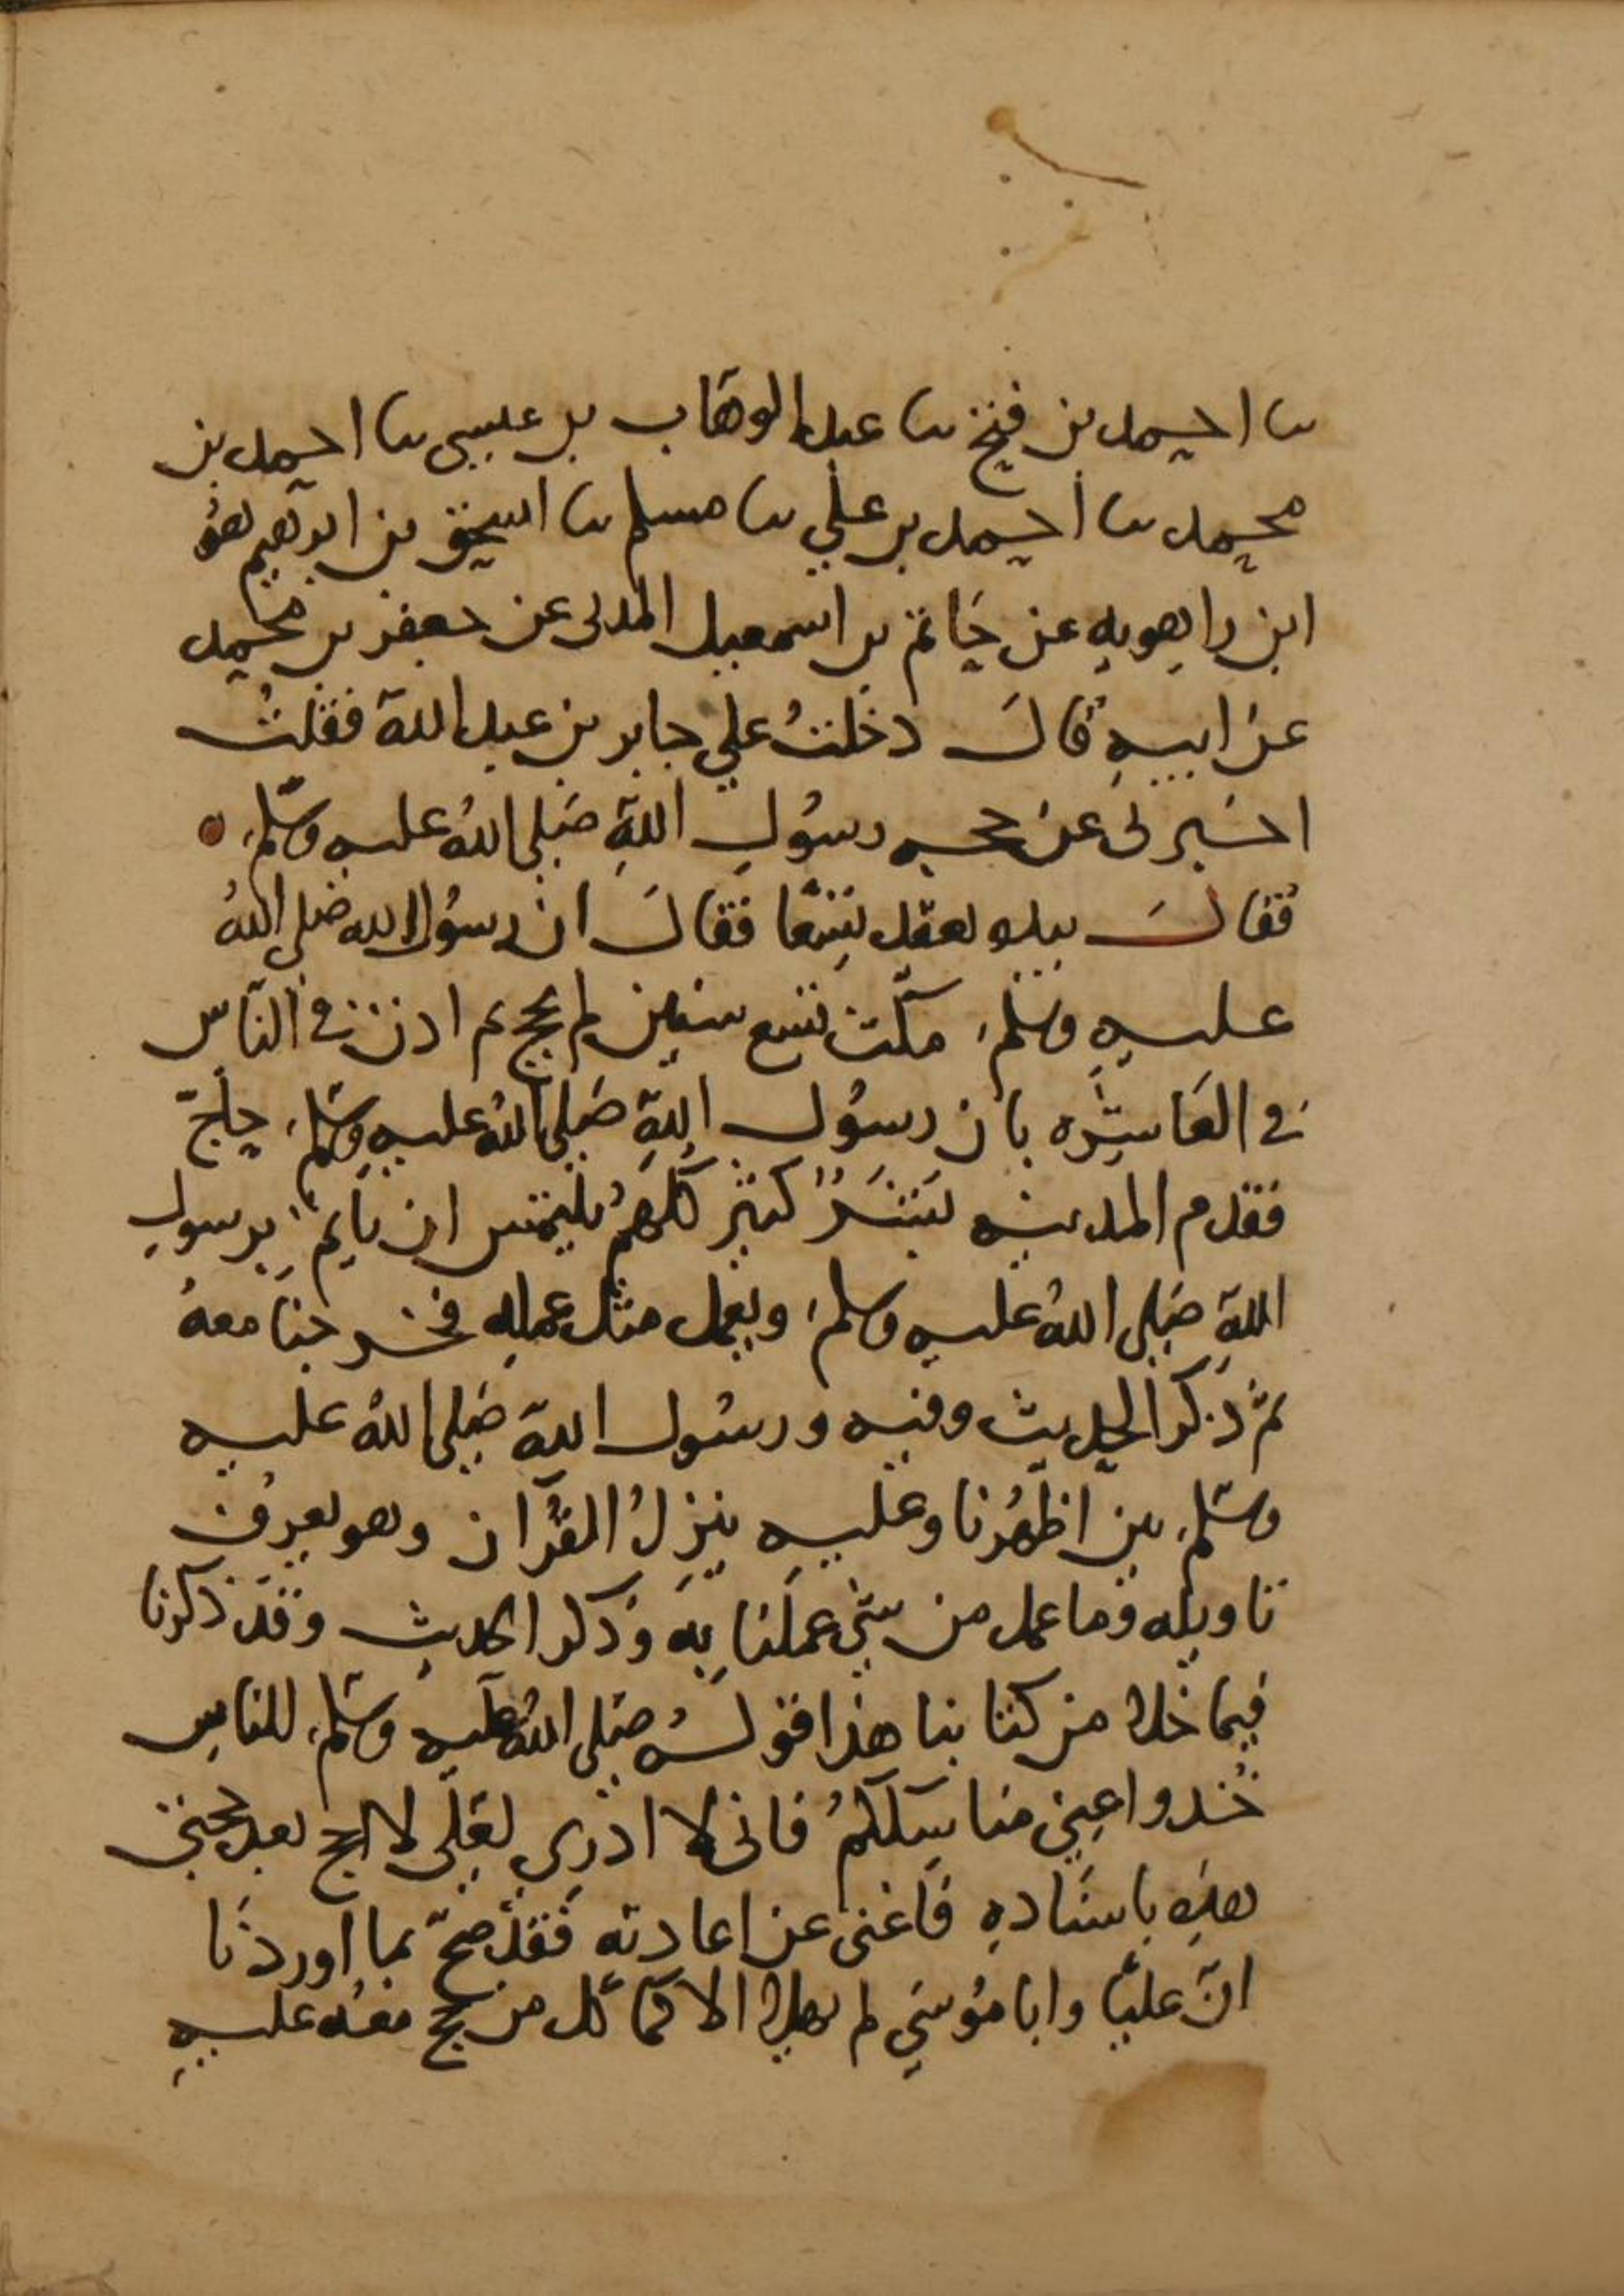 ثنا احمد بن فتح ثنا عبد الوهاب بن عيسى ثنا احمد بن
محمد ثنا احمد بن علي ثنا مسلم ثنا اسحق بن ابرهيم هو
ابن راهويه عن حاتم بن اسمعيل المدنى عن جعفر بن محمد
عن ابيه قال دخلت علي جابر بن عبد الله فقلت
اخبرنى عن حجه رسول الله صلى الله عليه وسلم
فقال بيده فعقد تسعا فقال ان رسول الله صلى الله
عليه وسلم مكث تسع سنين لم يحج ثم اذن في الناس
في العاشره بان رسول الله صلى الله عليه وسلم حاج
فقدم المدينه بشر كثير كلهم يلتمس ان ياتم برسول
الله صلى الله عليه وسلم ويعمل مثل عمله فخرجنا معه
ثم ذكر الحديث وفيه ورسول الله صلى الله عليه
وسلم بين اظهرنا وعليه ينزل القرآن وهو يعرف
تاويله وما عمل من شي عملنا به وذكر الحديث وقد ذكرنا
فيما خلا من كتابنا هذا قوله صلى الله عليه وسلم للناس
خذوا عني مناسككم فانى لا ادري لعلى لا احج بعد حجتي
هذه باسناده فاغنى عن اعادته فقد صح بما اوردنا
ان عليا وابا موسي لم يهلا الا كما كل من حج معه عليه